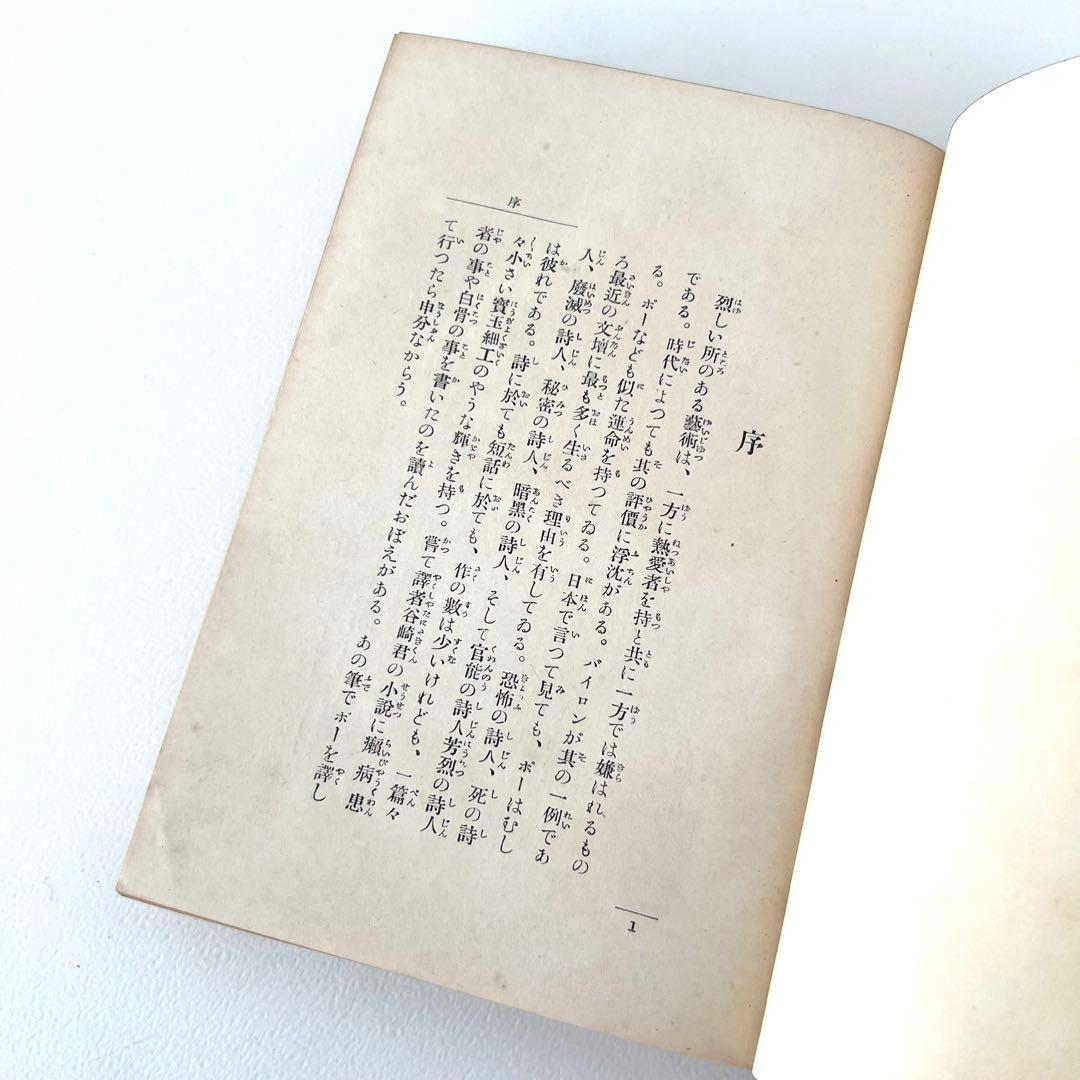 序
序
烈しい所のある藝術は、一方に熱愛者を持と共に一方では嫌はれるもの
である。時代によつても其の評價に浮沈がある。バイロンが其の一例であ
る。ポーなども似た運命を持つてゐる。日本で言つて見ても、ポーはむし
ろ最近の文壇に最も多く生るべき理由を有してゐる。恐怖の詩人、死の詩
人、廢滅の詩人、秘密の詩人、暗黑の詩人、そして官能の詩人芳烈の詩人
は彼れである。詩に於ても短話に於ても、作の數は少いけれども、一篇々
々小さい寶玉細工のやうな輝きを持つ。嘗て譯者谷崎君の小說に癩病患
者の事や白骨の事を書いたのを讀んだおぼえがある。あの筆でポーを譯し
て行つたら申分なからう。
1